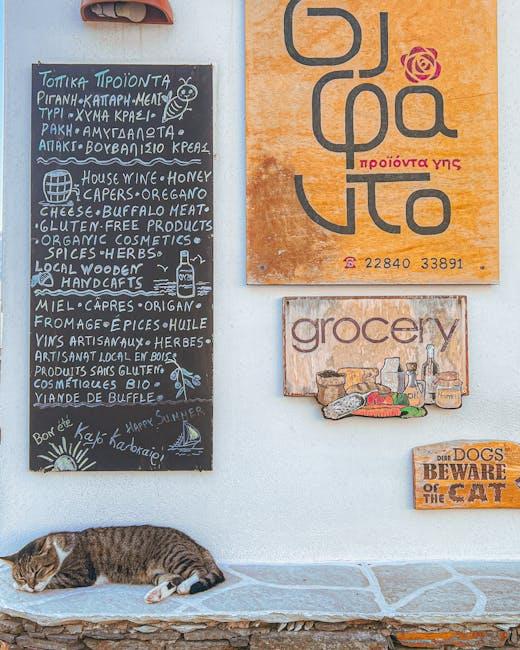 ΤΟΠΙΚΑ ΠΡΟΪΟΝΤΑ
ΡΙΓΑΝΗ • ΚΑΠΑΡΗ • ΜΕΛΙ
ΤΥΡΙ • ΧΥΜΑ ΚΡΑΣΙ •
ΡΑΚΗ • ΑΜΥΓΔΑΛΩΤΑ •
ΑΠΑΚΙ • ΒΟΥΒΑΛΙΣΙΟ ΚΡΕΑΣ
HOUSE WINE • HONEY
CAPERS • OREGANO
CHEESE • BUFFALO MEAT •
GLUTEN-FREE PRODUCTS
• ORGANIC COSMETICS •
SPICES • HERBS •
LOCAL WOODEN
HANDCAFTS
MIEL • CÂPRES • ORIGAN •
FROMAGE • ÉPICES • HUILE
VINS ARTISANAUX • HERBES •
ARTISANAT LOCAL EN BOIS
PRODUITS SANS GLUTEN
COSMÉTIQUES BIO •
VIANDE DE BUFFLE
Bon été
Καλό Καλοκαίρι
HAPPY SUMMER
προϊόντα γης
22840 33891
grocery
DEAR DOGS
BEWARE
OF THE CAT